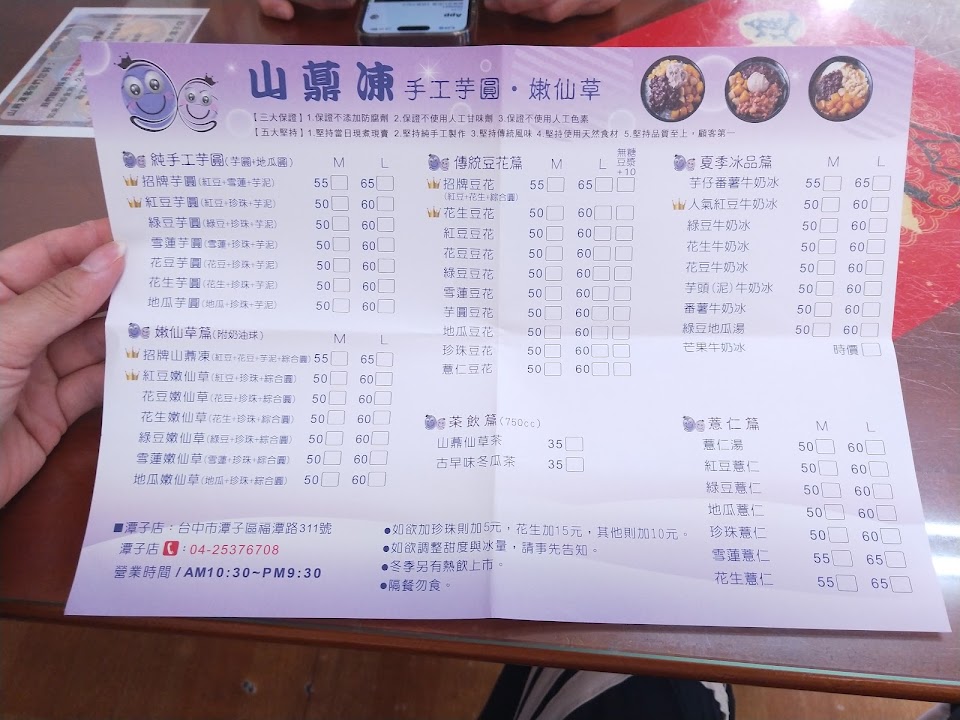 山薡凍 手工芋圓・嫩仙草
【三大保證】1.保證不添加防腐劑 2.保證不使用人工甘味劑 3.保證不使用人工色素
【五大堅持】1.堅持當日現煮現賣 2.堅持純手工製作 3.堅持傳統風味 4.堅持使用天然食材 5.堅持品質至上，顧客第一
純手工芋圓(芋圓+地瓜圓) M L
招牌芋圓(紅豆+雪蓮+芋泥) 55 65
紅豆芋圓(紅豆+珍珠+芋泥) 50 60
綠豆芋圓(綠豆+珍珠+芋泥) 50 60
雪蓮芋圓(雪蓮+珍珠+芋泥) 50 60
花豆芋圓(花豆+珍珠+芋泥) 50 60
花生芋圓(花生+珍珠+芋泥) 50 60
地瓜芋圓(地瓜+珍珠+芋泥) 50 60
嫩仙草篇(附奶油球) M L
招牌山薡凍(紅豆+花豆+芋泥+綜合圓) 55 65
紅豆嫩仙草(紅豆+珍珠+綜合圓) 50 60
花豆嫩仙草(花豆+珍珠+綜合圓) 50 60
花生嫩仙草(花生+珍珠+綜合圓) 50 60
綠豆嫩仙草(綠豆+珍珠+綜合圓) 50 60
雪蓮嫩仙草(雪蓮+珍珠+綜合圓) 50 60
地瓜嫩仙草(地瓜+珍珠+綜合圓) 50 60
傳統豆花篇 M L 無糖豆漿+10
招牌豆花 55 65
(紅豆+花生+綜合圓)
花生豆花 50 60
紅豆豆花 50 60
花豆豆花 50 60
綠豆豆花 50 60
雪蓮豆花 50 60
芋圓豆花 50 60
地瓜豆花 50 60
珍珠豆花 50 60
薏仁豆花 50 60
茶飲篇(750cc)
山薡仙草茶 35
古早味冬瓜茶 35
夏季冰品篇 M L
芋仔番薯牛奶冰 55 65
人氣紅豆牛奶冰 50 60
綠豆牛奶冰 50 60
花生牛奶冰 50 60
花豆牛奶冰 50 60
芋頭(泥)牛奶冰 50 60
番薯牛奶冰 50 60
綠豆地瓜湯 50 60
芒果牛奶冰 時價
薏仁篇 M L
薏仁湯 50 60
紅豆薏仁 50 60
綠豆薏仁 50 60
地瓜薏仁 50 60
珍珠薏仁 50 60
雪蓮薏仁 55 65
花生薏仁 55 65
■潭子店：台中市潭子區福潭路311號
潭子店：04-25376708
營業時間/AM10:30~PM9:30
●如欲加珍珠則加5元，花生加15元，其他則加10元。
●如欲調整甜度與冰量，請事先告知。
●冬季另有熱飲上市。
●隔餐勿食。